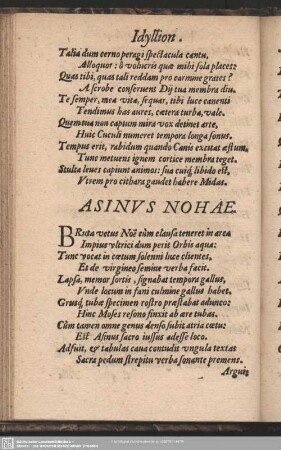 Idyllion.
Talia dum cerno peragi spectacula cantu,
Alloquor: ô volucris quæ mihi sola places:
Quas tibi, quas tali reddam pro carmine grates?
A scrobe conservent Dij tua membra diu.
Te semper, mea vita, sequar, tibi luce canenti
Tendimus has aures, cætera turba, vale.
Quem tua non captum mira vox detinet arte,
Huic Cuculi numeret tempora longa sonus.
Tempus erit, rabidum quando Canis excitat æstum,
Tunc metuens ignem cortice membra teget.
Stulta leves capiunt animos: sua cuiq; libido est,
Vivem pro cithara gaudet habere Midas.
ASINVS NOHAE.
BRuta vetus Noë cùm clausa teneret in arca
Impius ultrici dum perit Orbis aqua:
Tunc vocat in cœtum solenni luce clientes,
Et de virgineo semine verba facit.
Lapsa, memor sortis, signabat tempora gallus,
Vnde locum in fani culmine gallus habet.
Grusq; tubæ specimen rostro præstabat adunco:
Hinc Moses resono finxit ab ære tubas.
Cùm tamen omne genus denso subit atria cœtu:
Est Asinus sacro iussus adesse loco.
Adfuit, & tabulas cava contudit ungula textas
Sacra pedum strepitu verba sonante premens.
Arguit